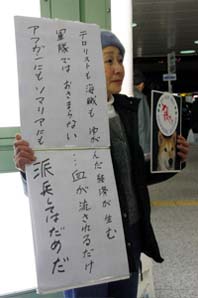 テロリストも海賊も ゆがんだ経済が生む
軍隊では おさまらない
…血が流されるだけ
アフガンにも ソマリアにも
派兵してはだめだ